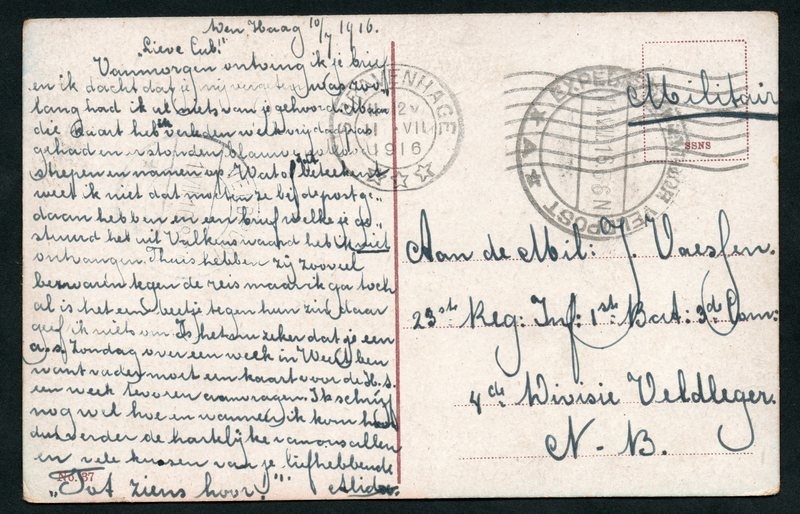 Den Haag 10/7 1916.
"Lieve Eub!"
Vanmorgen ontving ik je brief
en ik dacht dat je mij vergeten was zoo
lang had ik al niets van je gehoord.
die kaart heb ik verleden week vrijdag
gehad en stonden blauwe
strepen en namen op. Wat of dat beteekent
weet ik niet dat moeten ze bij de post ge-
daan hebben en een brief welke je ge-
stuurd het uit Valkenswaard heb ik niet
ontvangen. Thuis hebben zij zooveel
bezwaren tegen de reis maar ik ga toch
al is het een beetje tegen hun zin daar
geef ik niets om. Is het nu zeker dat je een
a.s. Zondag over een week in Weert ben
want vader moet een kaart voor de H.S.
een week tevoren aanvragen. Ik schrijf
nog wel hoe en wanneer ik kom
dus verder de hartelijke van allen
en vele kussen van je liefhebbende
"Tot ziens hoor!" Alida.
No. 37
'S-GRAVENHAGE
VII
1916
EXPEDITIE
VELDPOST
4
Militair
SSNS
Aan de Mil: J. Vaessen.
23ste Reg: Inf: 1ste Bat: 3de Com:
4de Divisie Veldleger.
N.-B.